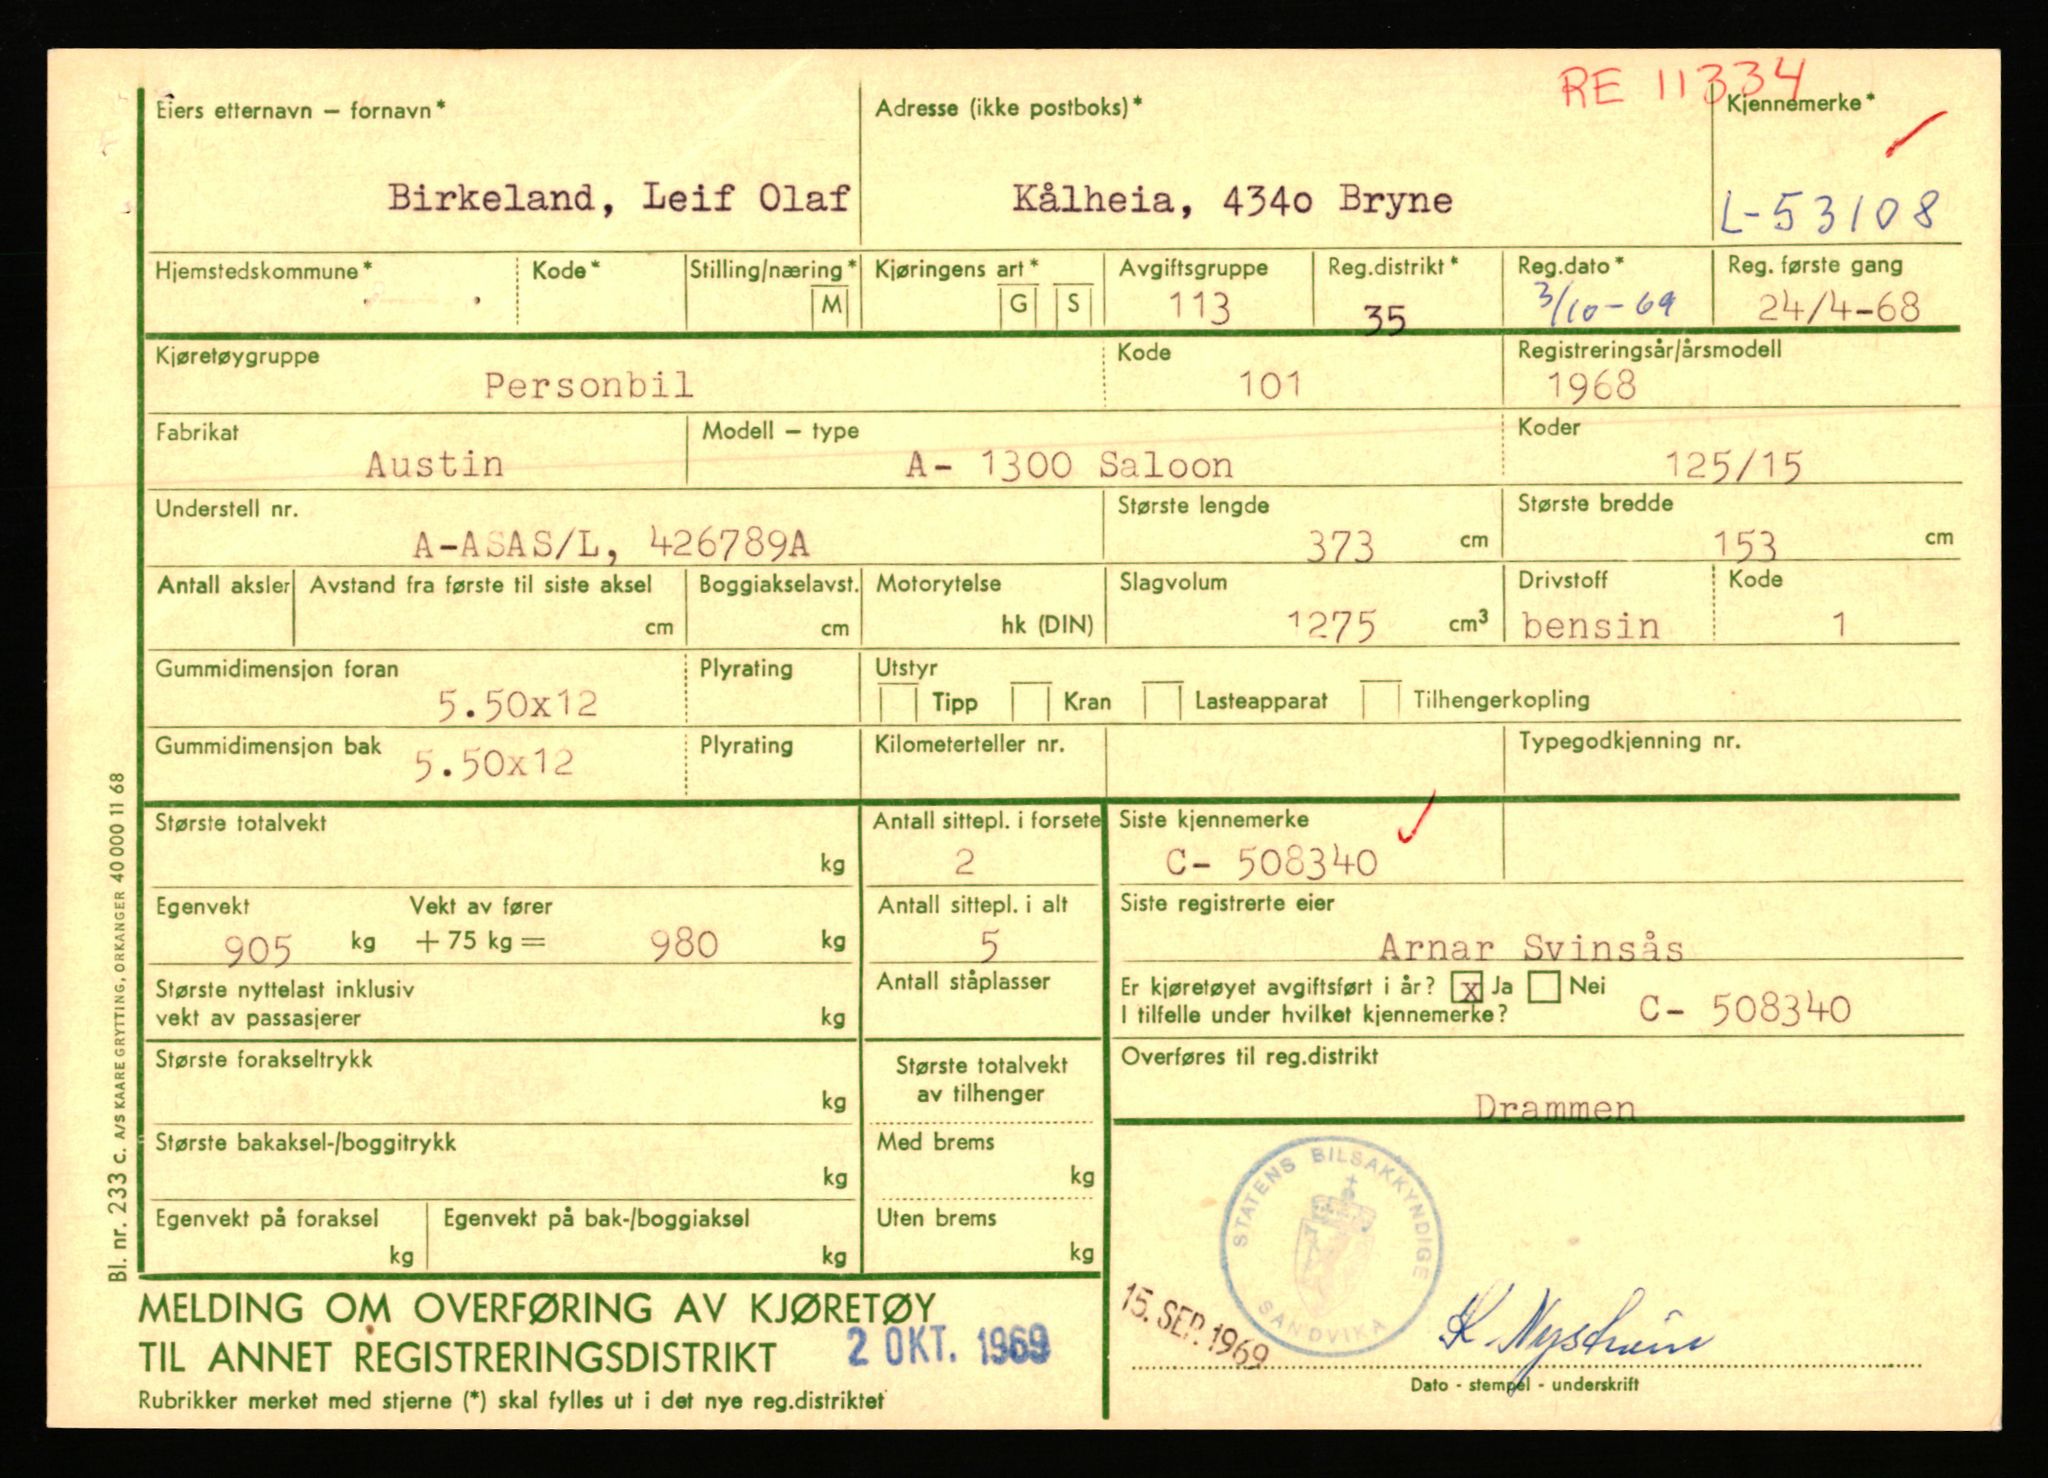 RE 11334
Eiers etternavn – fornavn*
Adresse (ikke postboks)*
Kjennemerke*
Birkeland, Leif Olaf
Kålheia, 4340 Bryne
L-53108
Hjemstedskommune*
Kode*
Stilling/næring*
Kjøringens art*
Avgiftsgruppe
Reg.distrikt*
Reg.dato*
Reg. første gang
M
G
S
113
35
3/10-69
24/4-68
Kjøretøygruppe
Kode
Registreringsår/årsmodell
Personbil
101
1968
Fabrikat
Modell – type
Koder
Austin
A- 1300 Saloon
125/15
Understell nr.
Største lengde
Største bredde
A-ASAS/L, 426789A
373 cm
153 cm
Antall aksler
Avstand fra første til siste aksel
Boggiakselavst.
Motorytelse
Slagvolum
Drivstoff
Kode
cm
cm
hk (DIN)
1275 cm³
bensin
1
Gummidimensjon foran
Plyrating
Utstyr
5.50x12
Tipp
Kran
Lasteapparat
Tilhengerkopling
Gummidimensjon bak
Plyrating
Kilometerteller nr.
Typegodkjenning nr.
5.50x12
Største totalvekt
Antall sittepl. i forsete
Siste kjennemerke
kg
2
C- 508340
Egenvekt
Vekt av fører
Antall sittepl. i alt
Siste registrerte eier
905 kg
+ 75 kg =
980 kg
5
Arnar Svinsås
Største nyttelast inklusiv
vekt av passasjerer
kg
Antall ståplasser
Er kjøretøyet avgiftsført i år? x Ja Nei
I tilfelle under hvilket kjennemerke?
C- 508340
Største forakseltrykk
kg
Største totalvekt
av tilhenger
Overføres til reg.distrikt
Drammen
Største bakaksel-/boggitrykk
kg
Med brems
kg
Egenvekt på foraksel
kg
Egenvekt på bak-/boggiaksel
kg
Uten brems
kg
STATENS BILSAKKYNDIGE
SANDVIKA
MELDING OM OVERFØRING AV KJØRETØY
TIL ANNET REGISTRERINGSDISTRIKT
2 OKT. 1969
15. SEP. 1969
K Nystrøm
Rubrikker merket med stjerne (*) skal fylles ut i det nye reg.distriktet
Dato - stempel - underskrift
Bl. nr. 233 c. A/S KAARE GRYTTING, ORKANGER 40 000 11 68